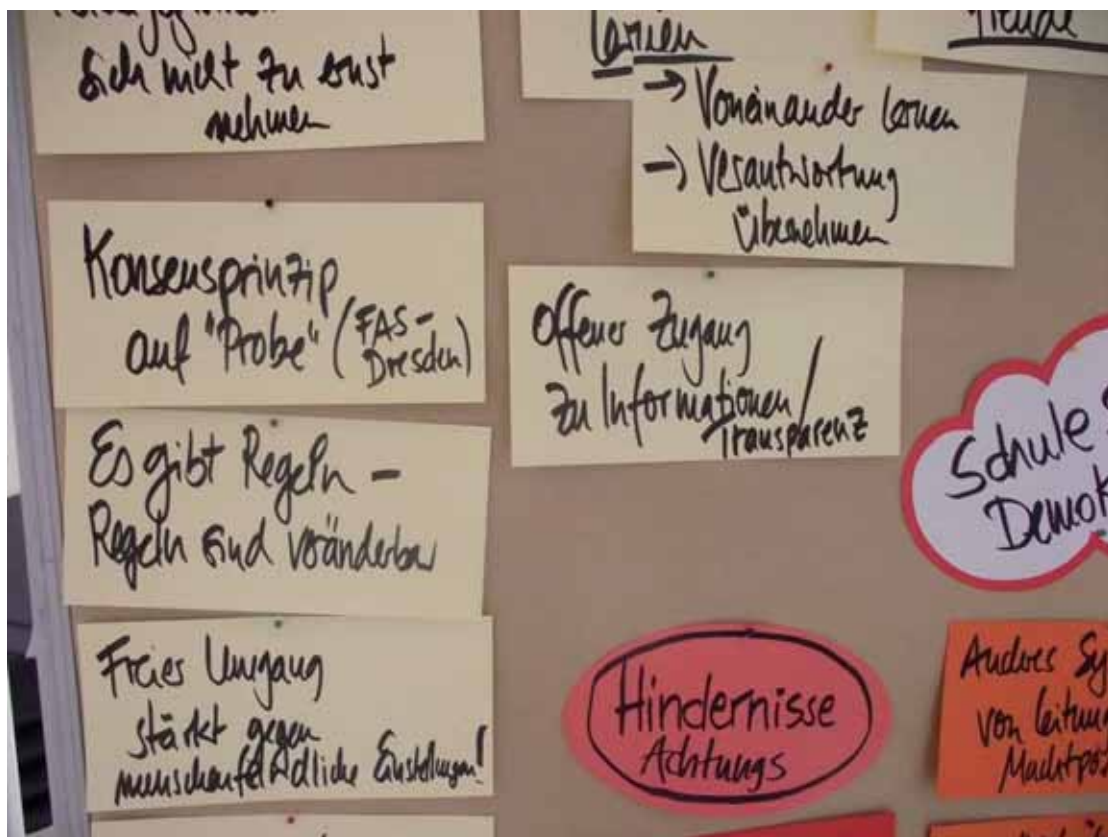 sich nicht zu ernst
nehmen
Konsensprinzip
auf "Probe" (FAS-
Dresden)
Es gibt Regeln –
Regeln sind veränderbar
Freies Umgang
stärkt gegen
menschenfeindliche Einstellungen!
lernen
→ Voneinander lernen
→ Verantwortung
übernehmen
Offener Zugang
zu Informationen/
Transparenz
Freude
Schule
Demok
Hindernisse
Achtungs
Anderes Sy
von Leitun
Machtpos